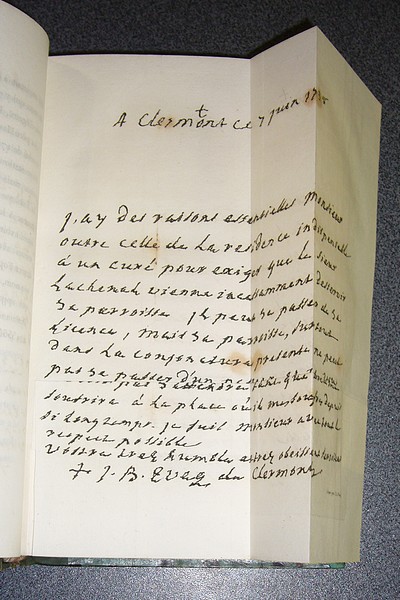 A Clermont ce 7 juin 17
J'ay des raisons essentielles monsieur
outre celle de la residence indispensable
a un curé pour exiger que le sieur
vienne incessamment desservir
sa parroisse il peut se passer de sa
licence, mais sa paroisse, surtout
dans la conjoncture presente ne peut
pas se passer d'un
a la place où il
si longtemps. je suis monsieur avec tout le
respect possible
Vostre tres humble et tres obeissant
+ J. B. Eveq. de Clermont